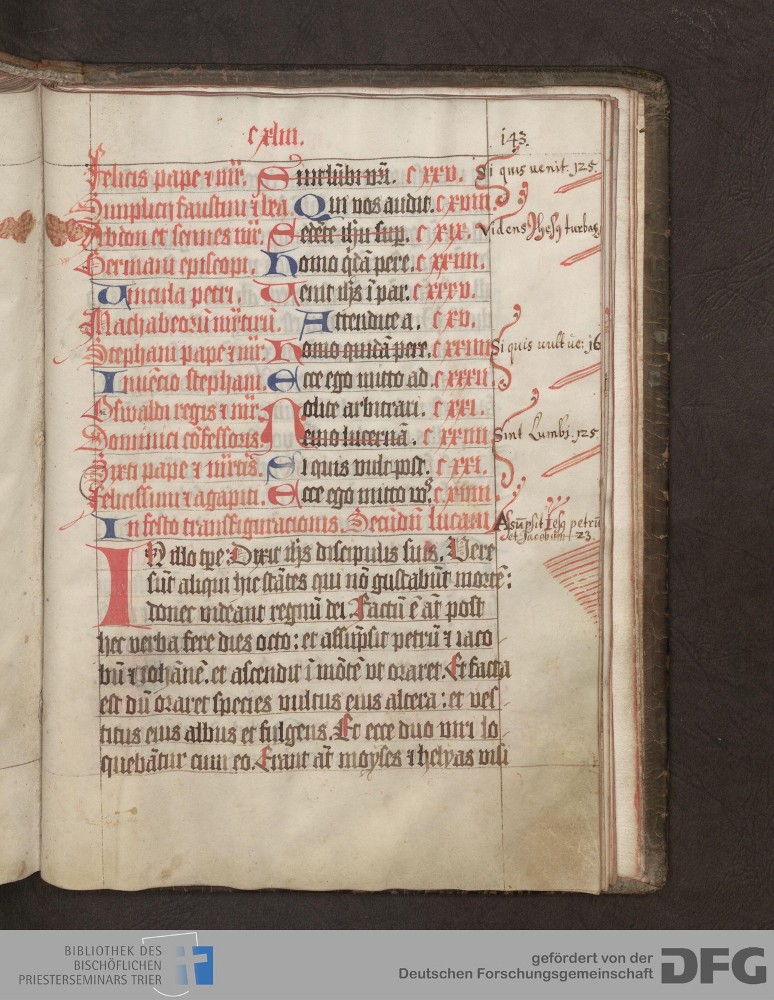 cxliii. 143.
Felicis pape ⁊ mr̄. Sint lūbi vr̄i. cxxv. Si quis uenit. 125.
Simplicij faustini ⁊ bea. Qui vos audit. cxviii
Abdon et sennes mr̄. Sedēte ihū sup. cxix. Videns Jhesꝰ turbas
Germani episcopi. Homo q̄dā pere. cxxiiii.
Vincula petri. Venit ihs̄ ī par. cxxxv.
Machabeorū mr̄tirū. Attendite a. cxv.
Stephani pape ⁊ mr̄. Homo quidā pere. cxxiiii Si quis uult ue: 16
Inuēcio stephani. Ecce ego mitto ad. cxxxii
Oswaldi regis ⁊ mr̄. Nolite arbitrari. cxxi.
Dominici cōfessoris. Nemo lucernā. cxxiiii Sint Lumbi. 125.
Sixti pape ⁊ mr̄tiris. Si quis vult post. cxxi.
Felicissimi ⁊ agapiti. Ecce ego mitto vos.
In festo transfiguracionis. Secūdū lucam Asūpsit Iesꝰ petrū
et Jacobum 123.
In illo tp̄e: Dixit ihs̄ discipulis suis. Vere
sūt aliqui hic stātes qui nō gustabūt mortē:
donec videant regnū dei. Factū ē āt post
hec verba fere dies octo: et assūpsit petrū ⁊ iaco
bū ⁊ iohānē. et ascendit ī mōtē vt oraret. Et facta
est dū oraret species vultus eius altera: et ves
titus eius albus et fulgēns. Et ecce duo viri lo
quebātur cum eo. Erant āt moyses ⁊ helyas visi
BIBLIOTHEK DES
BISCHÖFLICHEN
PRIESTERSEMINARS TRIER
gefördert von der
Deutschen Forschungsgemeinschaft DFG